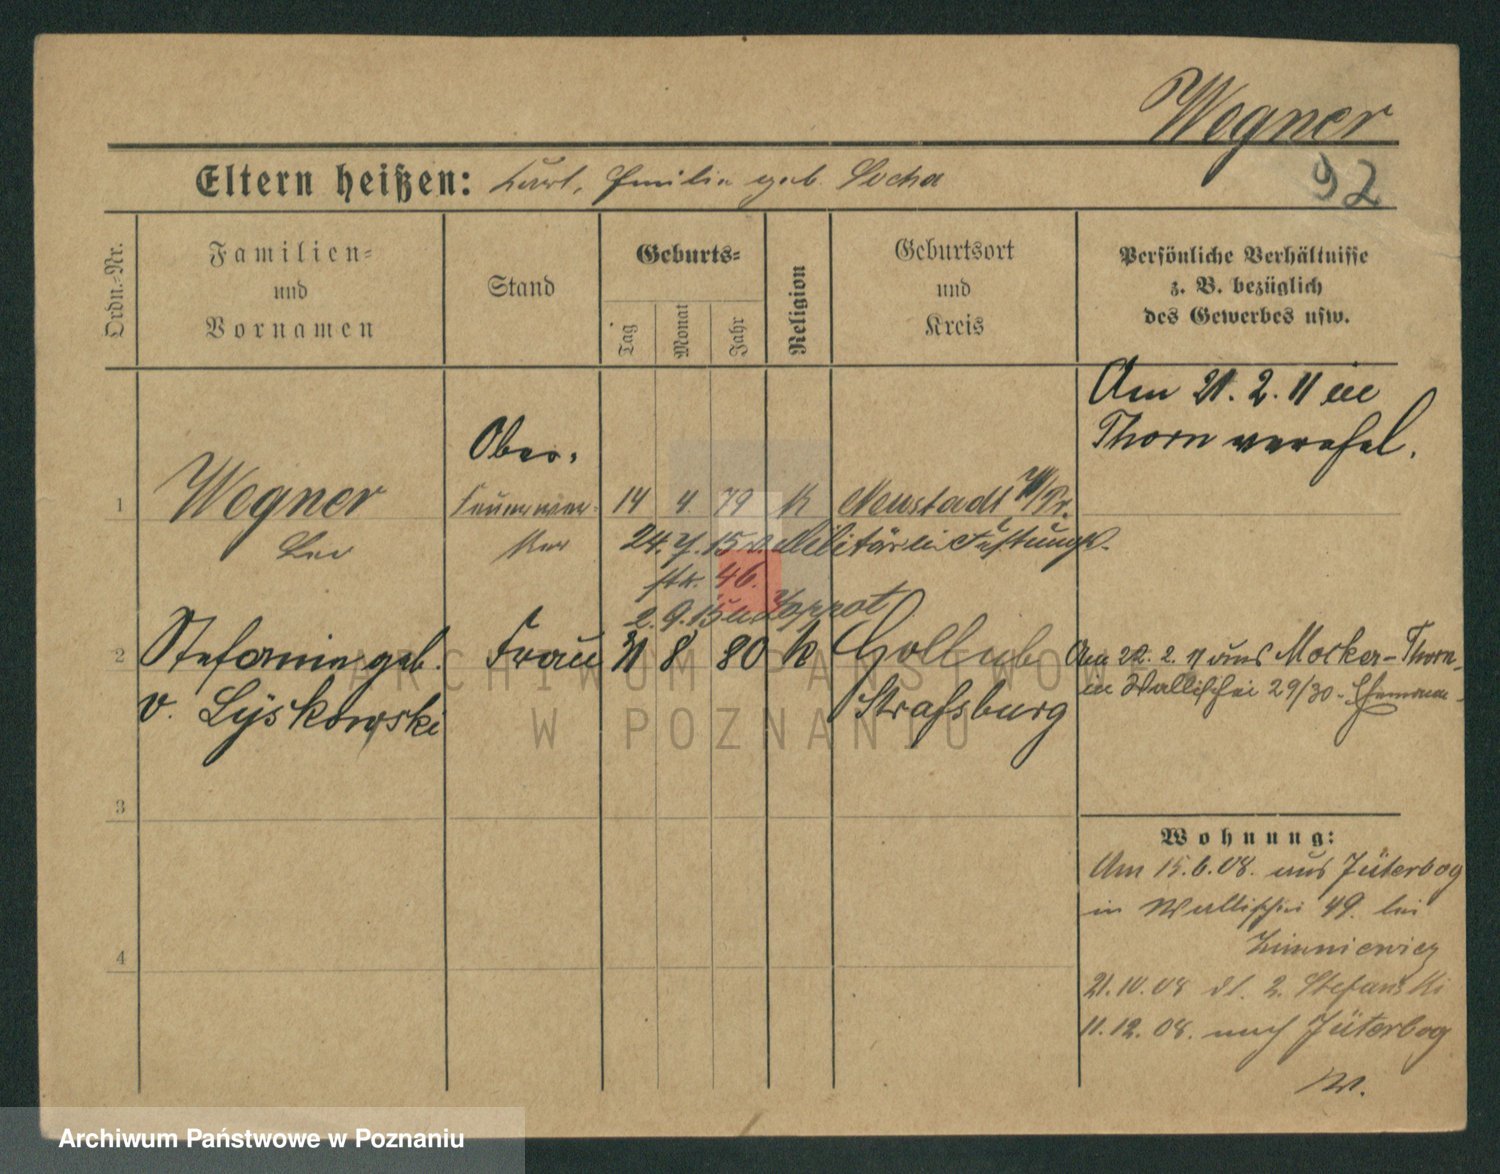 Wegner
92
Eltern heißen: Karl, Emilie geb. Socha
Ordn.-Nr.
Familien- und Vornamen
Stand
Geburts-
Tag
Monat
Jahr
Religion
Geburtsort und Kreis
Persönliche Verhältnisse
z. B. bezüglich
des Gewerbes usw.
Am 21. 2. 11 in
Thorn verehel.
Ober-
1 Wegner Feuerwer- 14 4. 79 K Neustadt W/Pr.
Leo ker 24. 7. 15 v. Militär
46.
2. 9. 15 n Zoppot
2 Stefanie geb. Frau 31 8 80 k Gollub Am 22. 2. 11 aus Mocker-Thorn
v. Lyskowski Strasburg in Wallischei 29/30
3
4
Wohnung:
Am 15.6.08. aus Jüterbog
in Wallischei 49. bei
Zimniewicz
21.10.08 dt. 2. Stefanski
11.12.08. nach Jüterbog
W.
ARCHIWUM PAŃSTWOWE
W POZNANIU
Archiwum Państwowe w Poznaniu